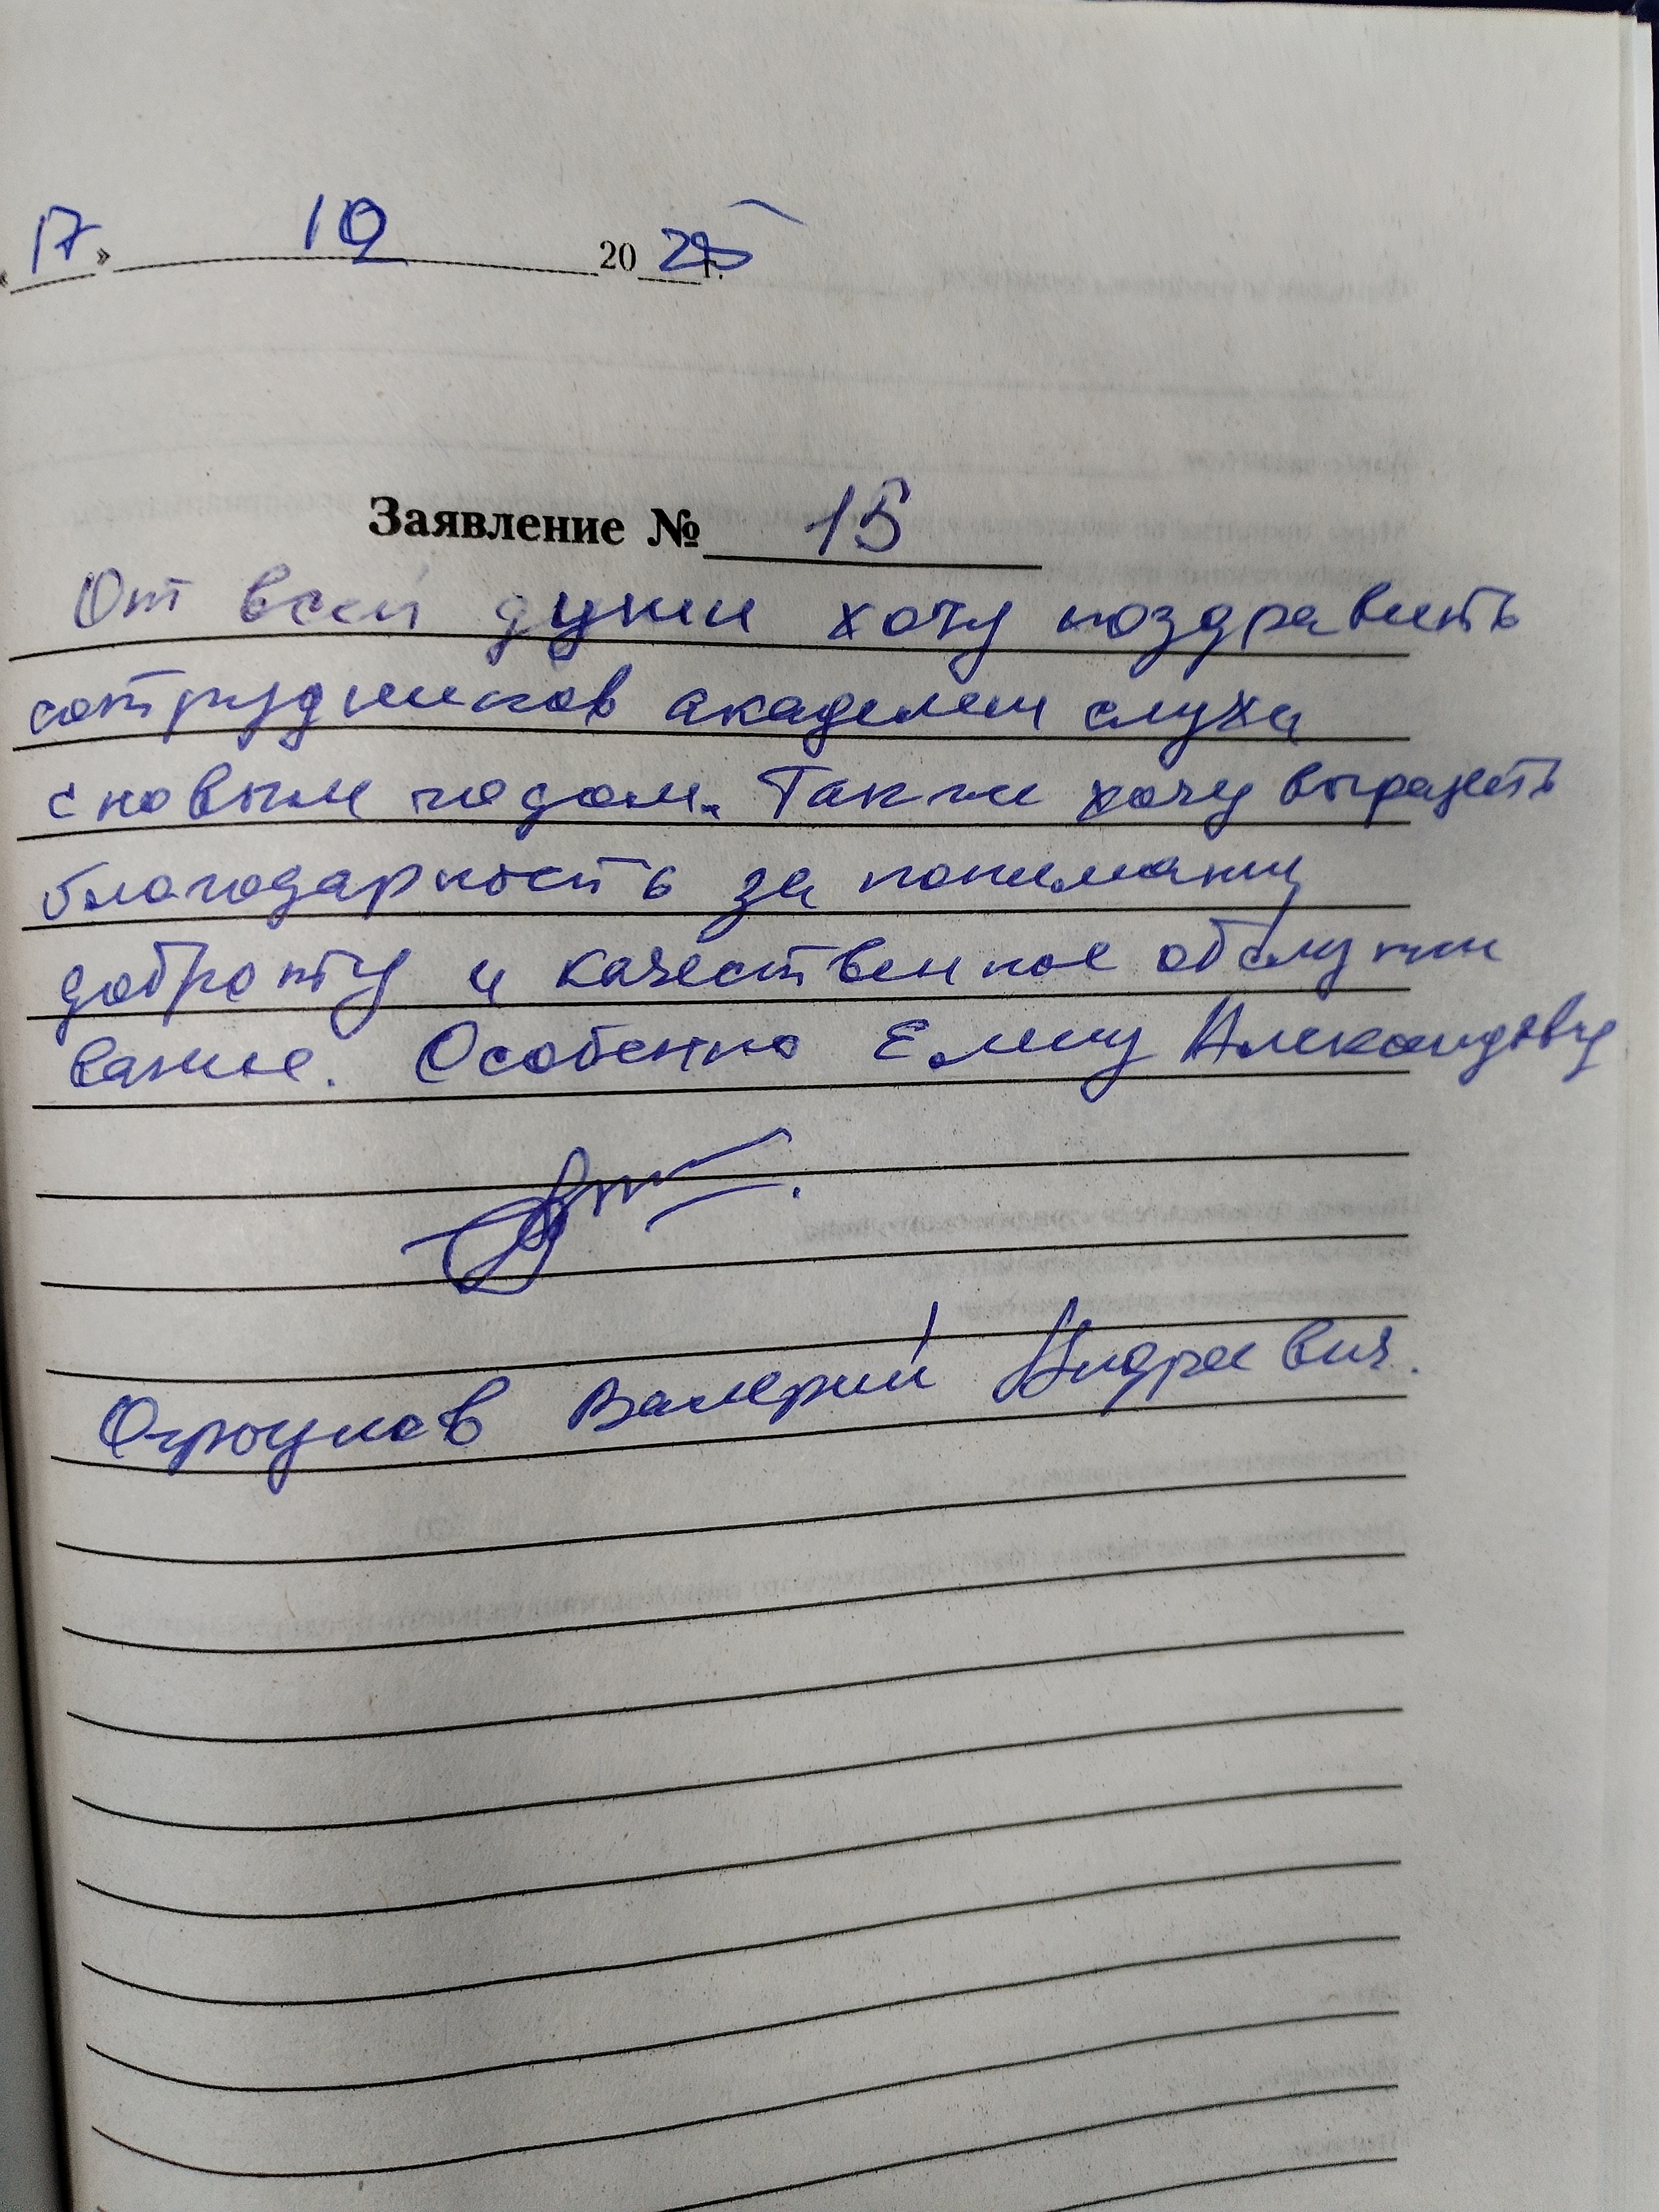 « 17 » 12 20 25 г.
Заявление № 15
От всей души хочу поздравить
сотрудников академии слуха
с новым годом. Также хочу выразить
благодарность за понимание
доброту и качественное обслужи
вание. Особенно Елену Александровну
Валерий Андреевич.